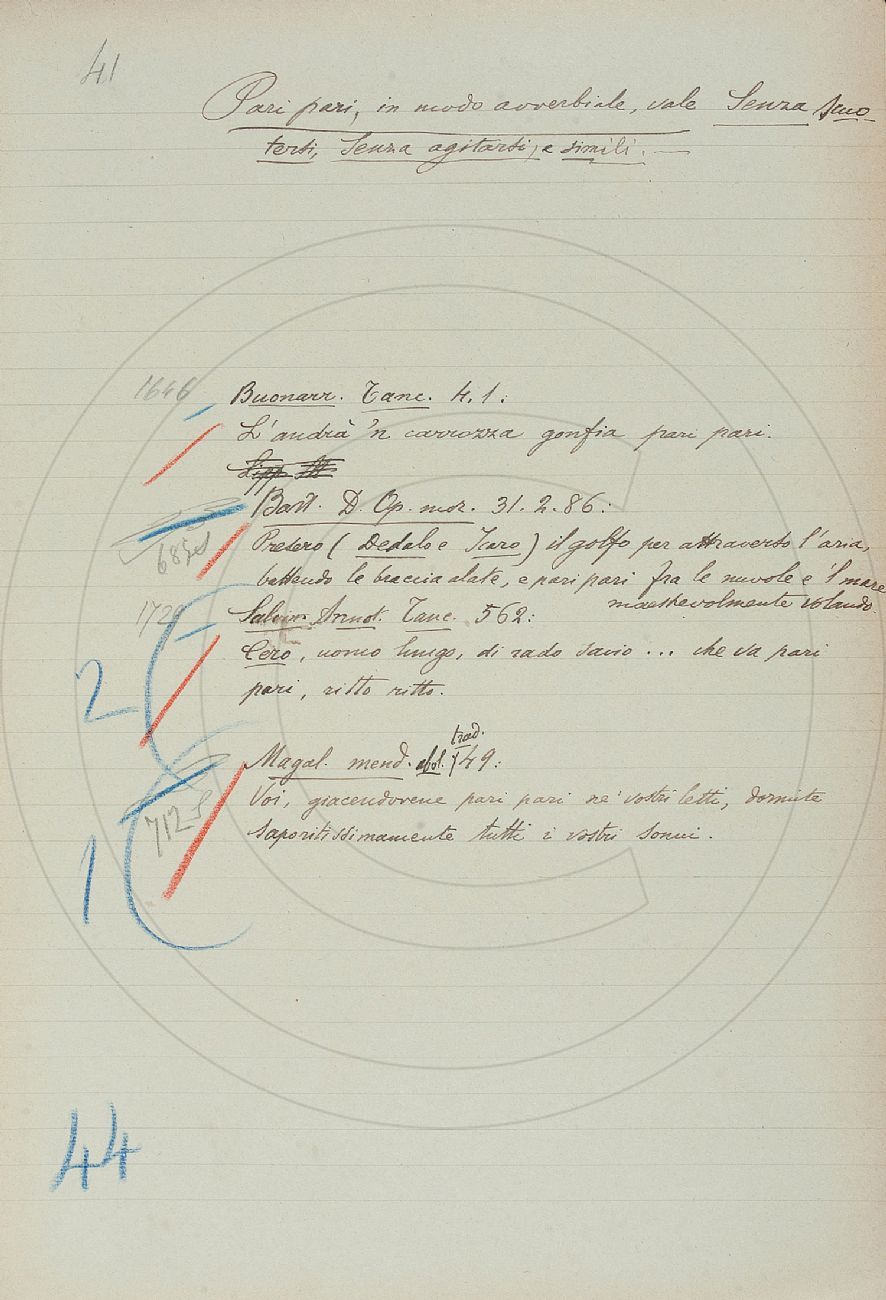 41
Pari pari, in modo avverbiale, vale Senza scuo-
tersi, Senza agitarsi, e simili. —
1646
Buonarr. Tanc. 4. 1:
L'andrà 'n carrozza gonfia pari pari.
Bart. D. Op. mor. 31. 2. 86:
685
Presero (Dedalo e Icaro) il golfo per attraverso l'aria,
battendo le braccia alate, e pari pari fra le nuvole e 'l mare
maestrevolmente volando.
172
Salvin. Annot. Tanc. 562:
Cero, uomo lungo, di rado savio ... che va pari
2
pari, ritto ritto.
trad.
Magal. mend. abol. 149:
Voi, giacendovene pari pari ne' vostri letti, dormite
712
saporitissimamente tutti i vostri sonni.
1
44